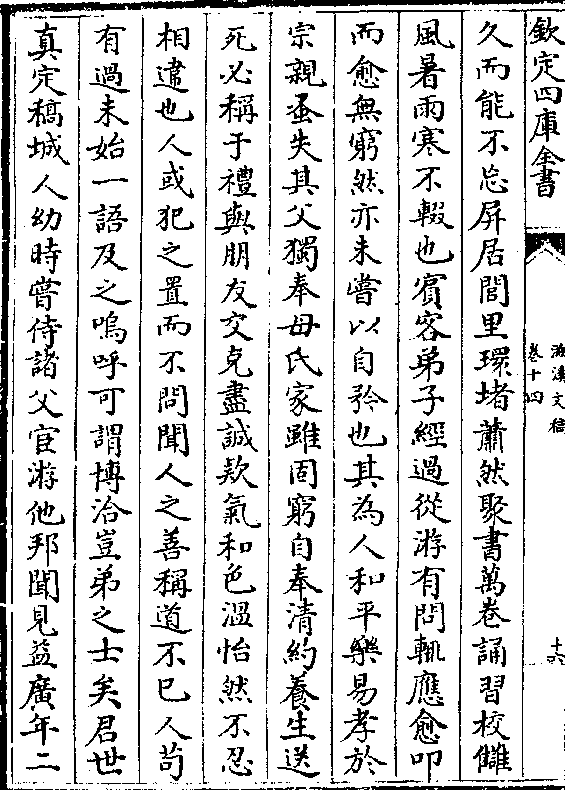 欽定四庫全書
滋溪文稿
卷十四
十四
久而能不忘屏居閭里環堵蕭然聚書萬卷誦習校讎
風暑雨寒不輟也賓客弟子經過從游有問輒應愈叩
而愈無窮然亦未嘗以自矜也其為人和平樂易孝於
宗親蚤失其父獨奉母氏家雖固窮自奉清約養生送
死必稱于禮與朋友交克盡誠欵氣和色溫怡然不忍
相違也人或犯之置而不問聞人之善稱道不已人苟
有過未始一語及之嗚呼可謂博洽豈弟之士矣君世
真定稿城人幼時嘗侍諸父宦游他邦聞見益廣年二